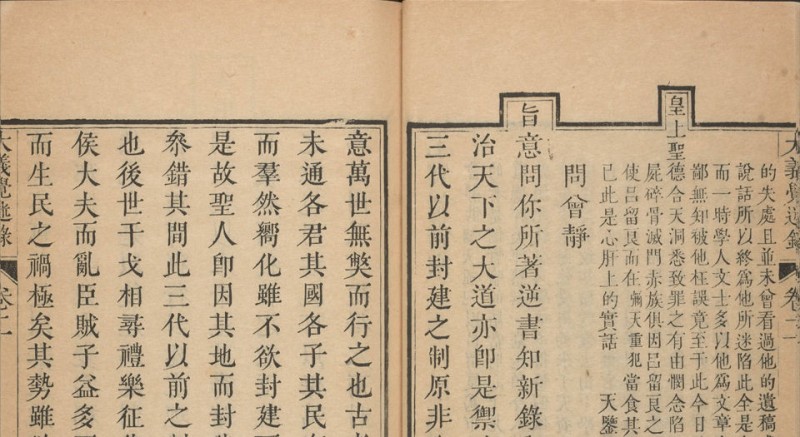 大義覺迷錄 卷二
的失處且並未曾看過他的遺稿
說話所以終爲他所迷陷此全是
而一時學人文士多以他爲文章
鄙無知被他枉誤竟至于此今日
皇上聖德合天洞悉致罪之有由憫念陷
屍碎骨滅門赤族俱因呂留良之
使呂留良而在彌天重犯當食其
已此是心肝上的實話 天鑒
問曾靜
旨意問你所著逆書知新錄
治天下之大道亦卽是禦
三代以前封建之制原非
意萬世無獘而行之也古
未通各君其國各子其民
而羣然嚮化雖不欲封建
是故聖人卽因其地而封
叅錯其間此三代以前之
也後世干戈相尋禮樂征
侯大夫而亂臣賊子益多
而生民之禍極矣其勢雖
大義覺迷錄 卷二